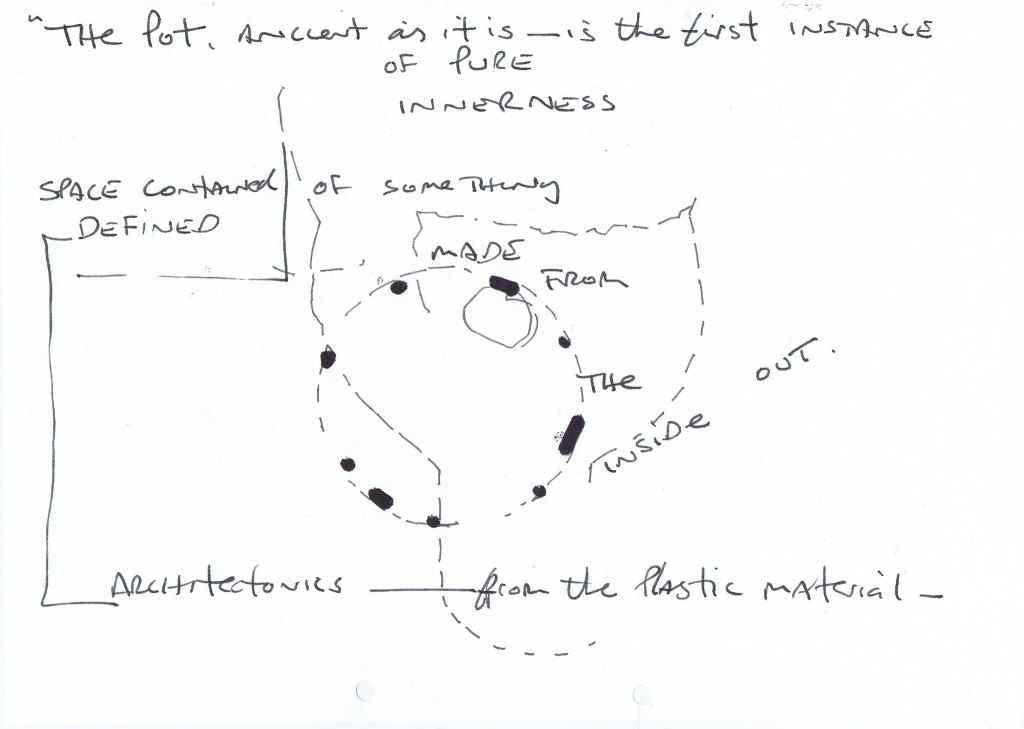 "THE POT. ANCIENT as it is — is the first INSTANCE
OF PURE
INNERNESS
SPACE CONTAINED OF SOMETHING
DEFINED
MADE
FROM
THE
INSIDE
OUT.
ARCHITECTONICS — from the Plastic material —